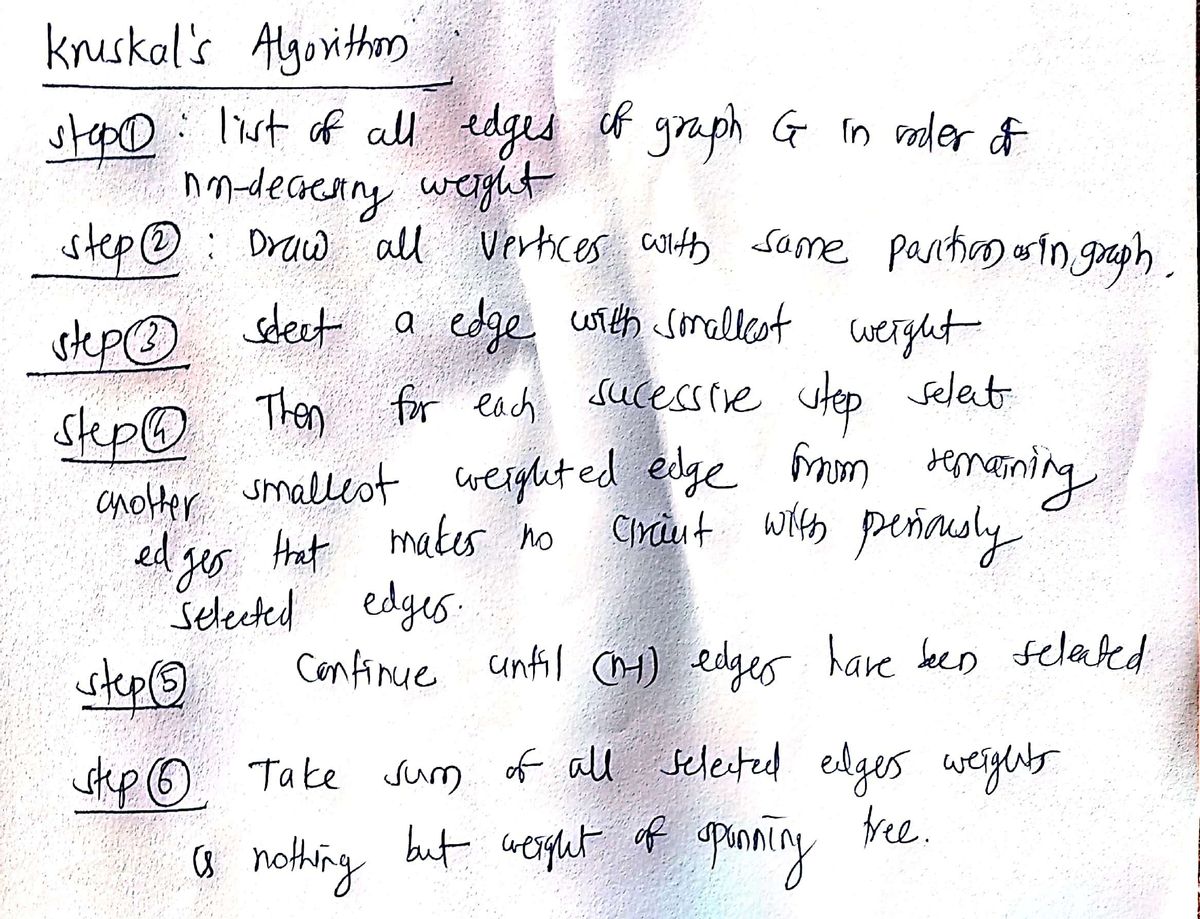 Kruskal's Algorithm
step① : list of all edges of graph G in order of
non-decresing weight
step② : Draw all vertices with same position as in graph.
step③ select a edge with smallest weight
step④ Then for each sucessive step select
another smallest weighted edge from remaining
edges that makes no circiut with periously
selected edges.
step⑤ Continue until (n-1) edges have been selected
step⑥ Take sum of all selected edges weights
is nothing but weight of spanning tree.